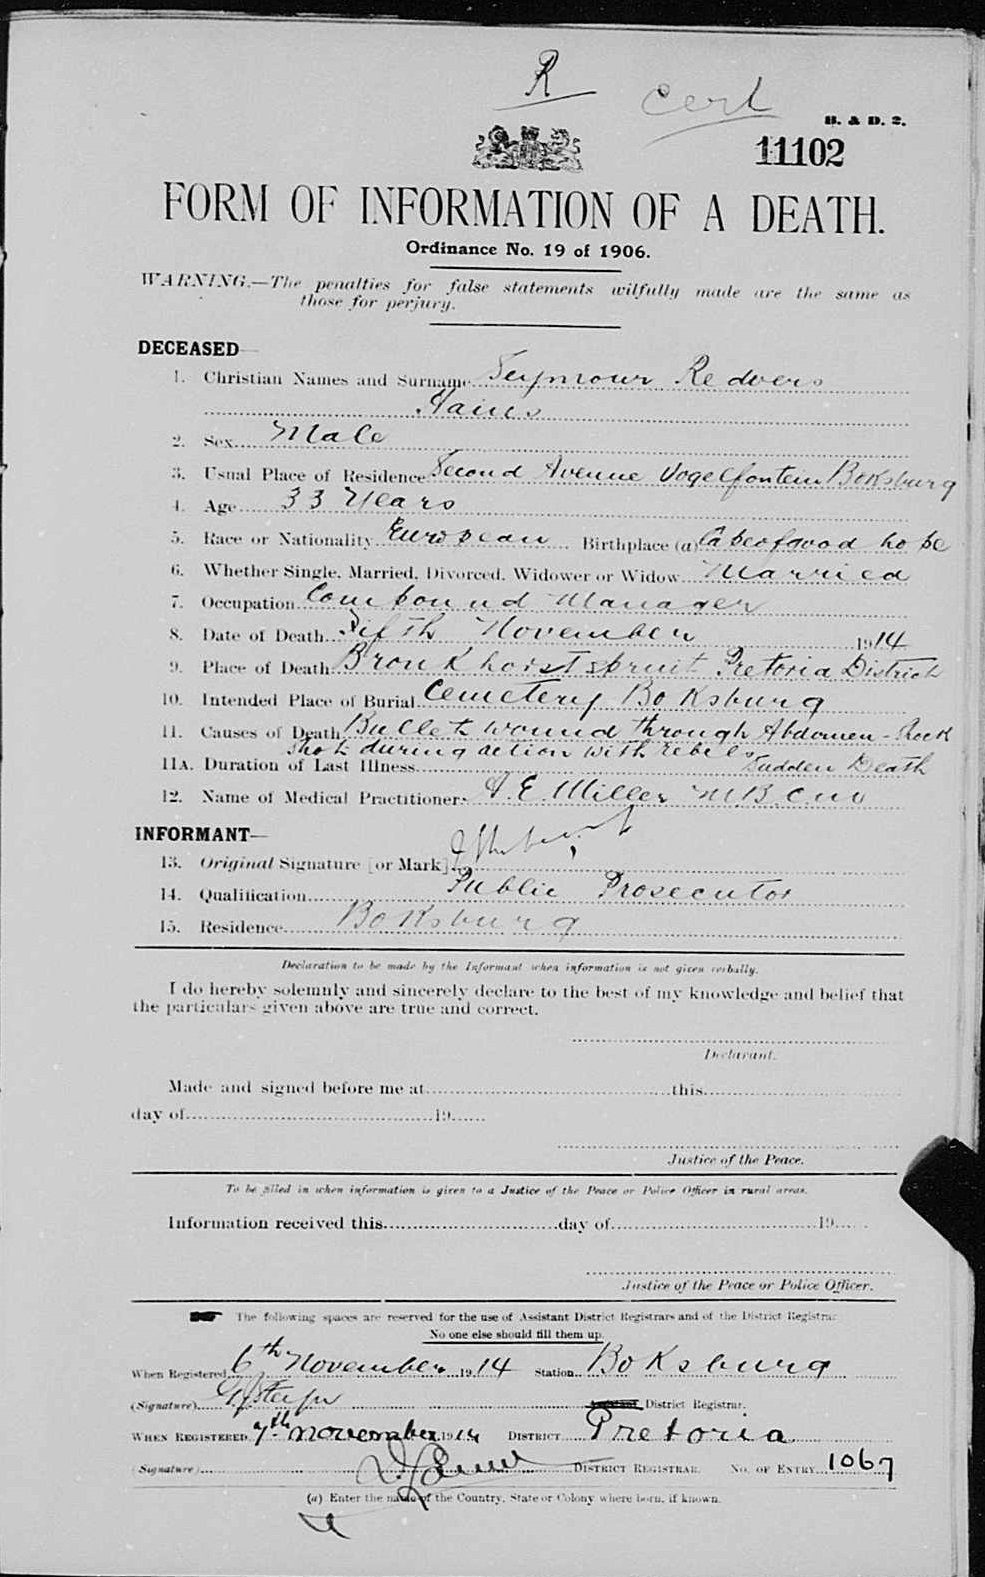 R
Cert
B. & D. 2.
11102
FORM OF INFORMATION OF A DEATH.
Ordinance No. 19 of 1906.
WARNING.—The penalties for false statements wilfully made are the same as
those for perjury.
DECEASED—
1. Christian Names and Surname Seymour Redvers
2. Sex Male
3. Usual Place of Residence Second Avenue Vogelfontein Boksburg
4. Age 33 Years
5. Race or Nationality European Birthplace (a) Cape of good hope
6. Whether Single, Married, Divorced, Widower or Widow Married
7. Occupation Compound Manager
8. Date of Death Fifth November 1914
9. Place of Death Bronkhorstspruit Pretoria District
10. Intended Place of Burial Cemetery Boksburg
11. Causes of Death Bullet wound through Abdomen - Shock
shot during action with rebels
11A. Duration of Last Illness Sudden Death
12. Name of Medical Practitioner A. E. Miller M.B. C.M.
INFORMANT—
13. Original Signature [or Mark]
14. Qualification Public Prosecutor
15. Residence Boksburg
Declaration to be made by the Informant when information is not given verbally.
I do hereby solemnly and sincerely declare to the best of my knowledge and belief that
the particulars given above are true and correct.
Declarant.
Made and signed before me at this
day of 19
Justice of the Peace.
To be filled in when information is given to a Justice of the Peace or Police Officer in rural areas.
Information received this day of 19
Justice of the Peace or Police Officer.
The following spaces are reserved for the use of Assistant District Registrars and of the District Registrar.
No one else should fill them up.
When Registered 6th November 1914 Station Boksburg
(Signature) Assistant District Registrar.
WHEN REGISTERED 7th november 1914 DISTRICT Pretoria
(Signature) DISTRICT REGISTRAR. NO. OF ENTRY 1067
(a) Enter the name of the Country, State or Colony where born, if known.